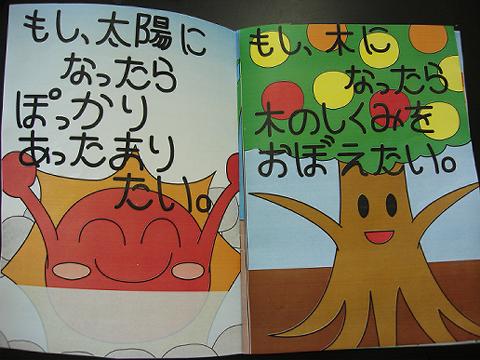 もし、太陽に
なったら
ぽっかり
あったまり
たい。
もし、木に
なったら
木のしくみを
おぼえたい。